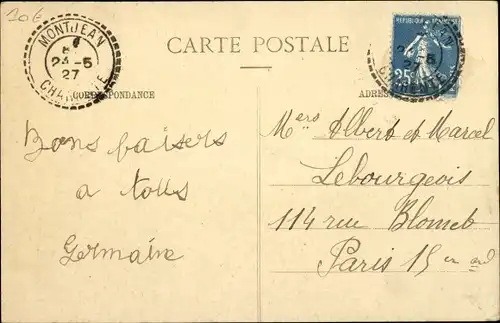 10€
MONTJEAN
24-5
27
CHARENTE
CARTE POSTALE
REPUBLIQUE
25c
CORRESPONDANCE
ADRES
Bons baisers
a tous
Germaine
Mers Albert et Marcel
Lebourgeois
114 rue Blomet
Paris 15 en ar